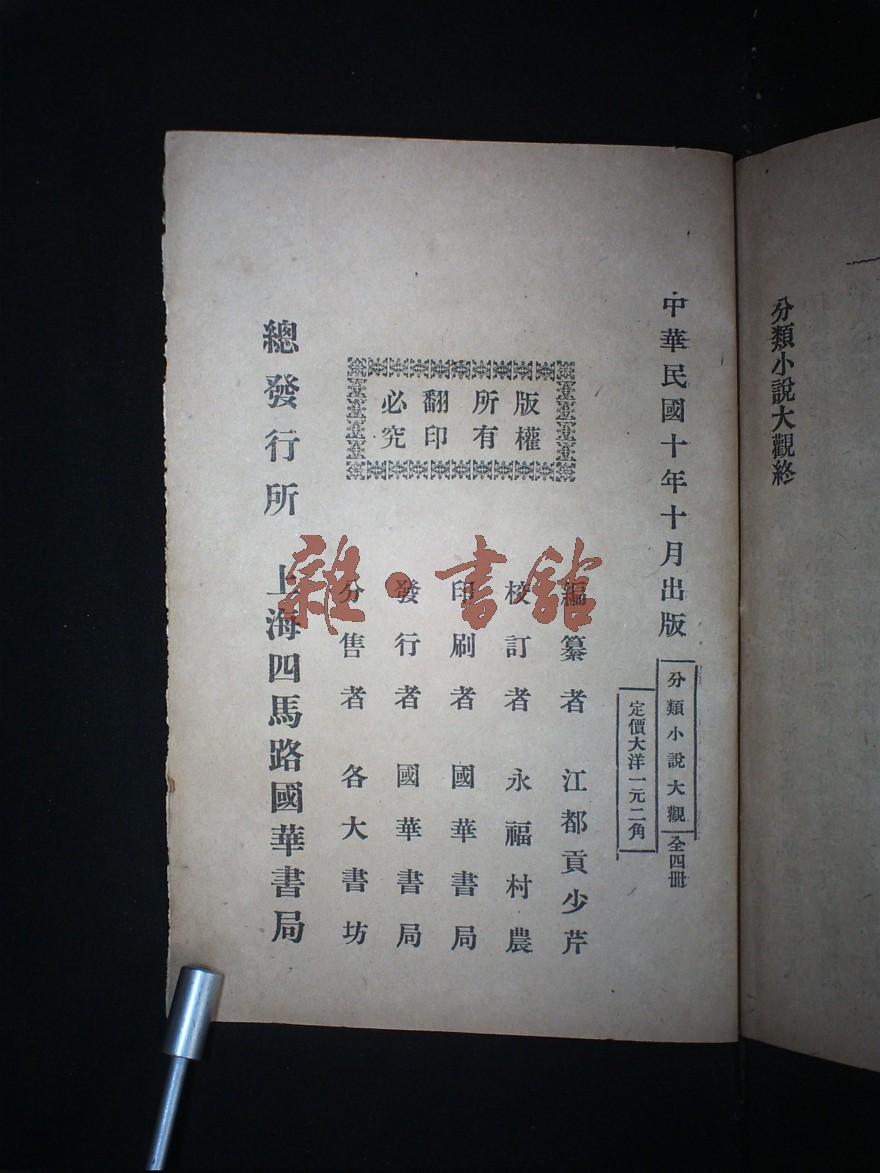 分類小說大觀終
中華民國十年十月出版
分類小說大觀 全四冊
定價大洋一元二角
版權
所有
翻印
必究
編纂者 江都貢少芹
校訂者 永福村農
印刷者 國華書局
發行者 國華書局
分售者 各大書坊
總發行所 上海四馬路國華書局
雜·書館